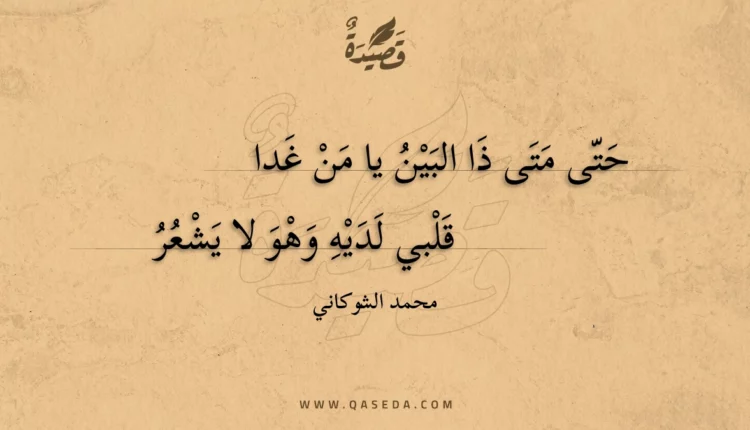 قَصِيْدَةٌ
حَتّى مَتَى ذَا البَيْنُ يا مَنْ غَدا
قَلْبي لَدَيْهِ وَهْوَ لا يَشْعُرُ
محمد الشوكاني
WWW.QASEDA.COM